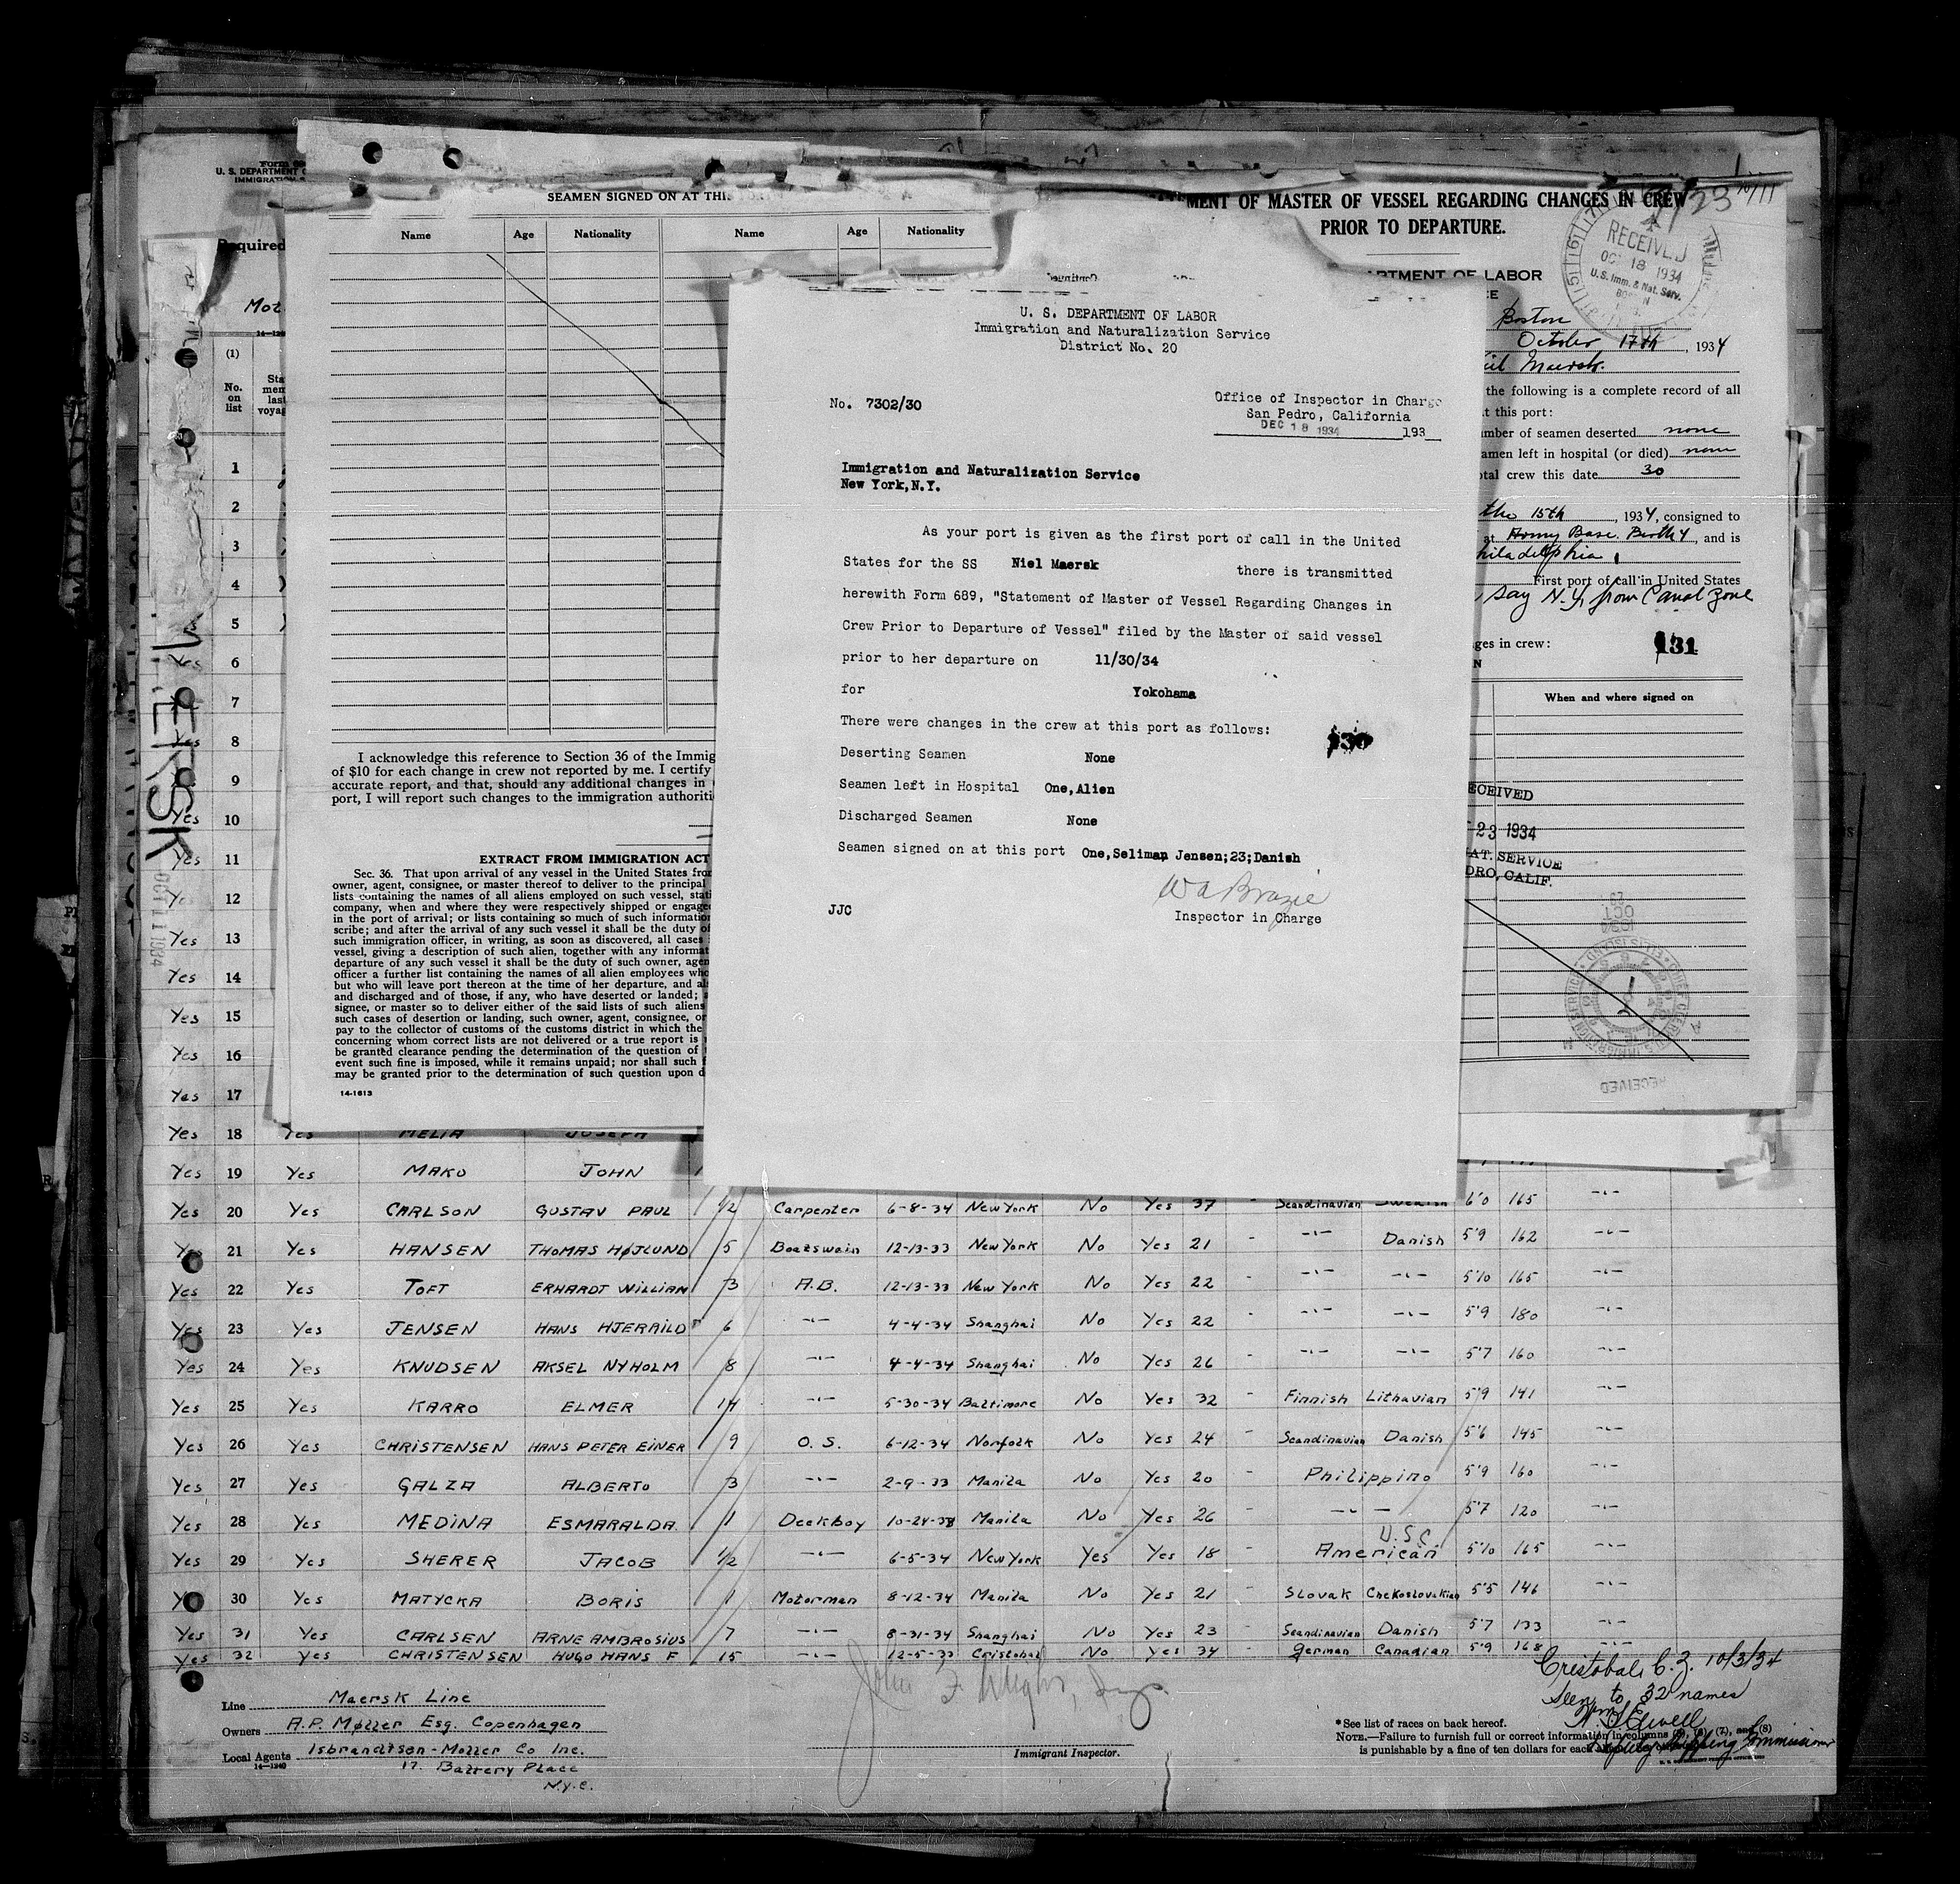 U. S. DEPARTMENT
IMMIGRATION
Required
Mot
(1)
No.
on
list
SEAMEN SIGNED ON AT THIS
Name Age Nationality Name Age Nationality
I acknowledge this reference to Section 36 of the Immig
of $10 for each change in crew not reported by me. I certify
accurate report, and that, should any additional changes in
port, I will report such changes to the immigration authoriti
EXTRACT FROM IMMIGRATION ACT
Sec. 36. That upon arrival of any vessel in the United States from
owner, agent, consignee, or master thereof to deliver to the principal
lists containing the names of all aliens employed on such vessel, stati
company, when and where they were respectively shipped or engage
in the port of arrival; or lists containing so much of such information
scribe; and after the arrival of any such vessel it shall be the duty of
such immigration officer, in writing, as soon as discovered, all cases
vessel, giving a description of such alien, together with any informat
departure of any such vessel it shall be the duty of such owner, agen
officer a further list containing the names of all alien employees who
but who will leave port thereon at the time of her departure, and al
and discharged and of those, if any, who have deserted or landed;
signee, or master so to deliver either of the said lists of such aliens
such cases of desertion or landing, such owner, agent, consignee, or
pay to the collector of customs of the customs district in which the
concerning whom correct lists are not delivered or a true report is
be granted clearance pending the determination of the question of
event such fine is imposed, while it remains unpaid; nor shall such f
may be granted prior to the determination of such question upon d
14-1613
MENT OF MASTER OF VESSEL REGARDING CHANGES IN CREW
PRIOR TO DEPARTURE.
ARTMENT OF LABOR
RECEIVED
OCT 18 1934
U.S. Imm. & Nat. Serv.
Boston
October 17th, 1934
Maersk.
the following is a complete record of all
t this port:
mber of seamen deserted none
amen left in hospital (or died) none
tal crew this date 30
the 15th, 1934, consigned to
at Army Base. Berth 4, and is
hiladelphia
First port of call in United States
say N.Y. from Canal Zone
ges in crew:
131
When and where signed on
ECEIVED
23 1934
AT. SERVICE
DRO, CALIF.
U. S. DEPARTMENT OF LABOR
Immigration and Naturalization Service
District No. 20
No. 7302/30
Office of Inspector in Charge
San Pedro, California
DEC 18 1934 193
Immigration and Naturalization Service
New York,N.Y.
As your port is given as the first port of call in the United
States for the SS Niel Maersk there is transmitted
herewith Form 689, "Statement of Master of Vessel Regarding Changes in
Crew Prior to Departure of Vessel" filed by the Master of said vessel
prior to her departure on 11/30/34
for Yokohama
There were changes in the crew at this port as follows:
130
Deserting Seamen None
Seamen left in Hospital One,Alien
Discharged Seamen None
Seamen signed on at this port One,Seliman Jensen;23;Danish
W A Brazie
JJC Inspector in Charge
ERSK
OCT 11 1934
1
2
3
4
5
Yes 6
7
Yes 8
9
Yes 10
Yes 11
Yes 12
Yes 13
Yes 14
Yes 15
Yes 16
Yes 17
Yes 18 Yes MELIA JOSEPH
Yes 19 Yes MAKO JOHN
Yes 20 Yes CARLSON GUSTAV PAUL 1/2 Carpenter 6-8-34 New York No Yes 37 - Scandinavian Swedish 6'0 165 -"-
Yes 21 Yes HANSEN THOMAS HØJLUND 5 Boatswain 12-13-33 New York No Yes 21 - -"- Danish 5'9 162 -"-
Yes 22 Yes TOFT ERHARDT WILLIAN 3 A.B. 12-13-33 New York No Yes 22 - -"- -"- 5'10 165 -"-
Yes 23 Yes JENSEN HANS HJERRILD 6 -"- 4-4-34 Shanghai No Yes 22 - -"- -"- 5'9 180 -"-
Yes 24 Yes KNUDSEN AKSEL NYHOLM 8 -"- 4-4-34 Shanghai No Yes 26 - -"- -"- 5'7 160 -"-
Yes 25 Yes KARRO ELMER 14 -"- 5-30-34 Baltimore No Yes 32 - Finnish Lithavian 5'9 141 -"-
Yes 26 Yes CHRISTENSEN HANS PETER EINER 9 O. S. 6-12-34 Norfolk No Yes 24 - Scandinavian Danish 5'6 145 -"-
Yes 27 Yes GALZA ALBERTO 3 -"- 2-9-33 Manila No Yes 20 - Philippino 5'9 160 -"-
Yes 28 Yes MEDINA ESMARALDA 1 Deckboy 10-24-33 Manila No Yes 26 - -"- 5'7 120 -"-
U.S.C.
Yes 29 Yes SHERER JACOB 1/2 -"- 6-5-34 New York Yes Yes 18 - American 5'10 165 -"-
Yes 30 Yes MATYCKA BORIS 1 Motorman 8-12-34 Manila No Yes 21 - Slovak Chekoslovakian 5'5 146 -"-
Yes 31 Yes CARLSEN ARNE AMBROSIUS 7 -"- 8-31-34 Shanghai No Yes 23 - Scandinavian Danish 5'7 133 -"-
Yes 32 Yes CHRISTENSEN HUGO HANS F 15 -"- 12-5-33 Cristobal No Yes 34 - German Canadian 5'9 168 -"-
Line Maersk Line
Owners A.P. Møller Esq. Copenhagen
Local Agents Isbrandtsen-Moller Co Inc.
14-1240 17. Battery Place
N.Y.C.
Immigrant Inspector.
Cristobal, C.Z. 10/3/34
Seen to 32 names
*See list of races on back hereof.
NOTE.—Failure to furnish full or correct information in columns (5), (6), (7), and (8)
is punishable by a fine of ten dollars for each
Deputy Shipping Commissioner